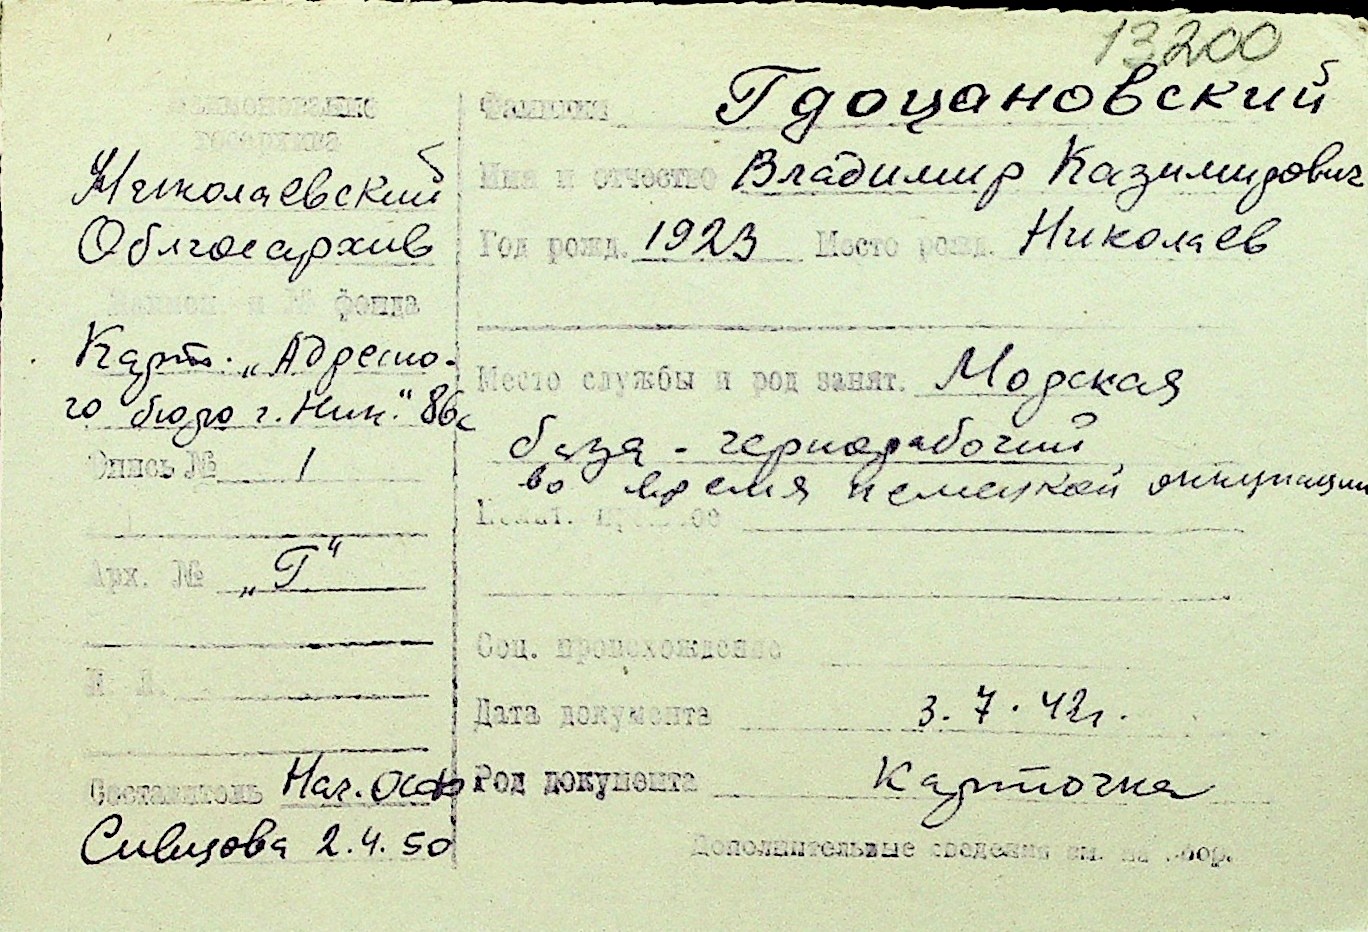 13200
Наименование
госархива
Николаевский
Облгосархив
Наимен. и № фонда
Карт. „Адресно-
го бюро г. Ник." 86с
Опись № 1
Арх. № „Г"
К. Л.
Составитель Нач. ОСФ
Сивцова 2.4.50
Фамилия Гдоцановский
Имя и отчество Владимир Казимирович
Год рожд. 1923 Место рожд. Николаев
Место службы и род занят. Морская
база - чернорабочий
во время немецкой оккупации
Соц. происхождение
Дата документа 3.7.42г.
Род документа Карточка
Дополнительные сведения см. на обор.